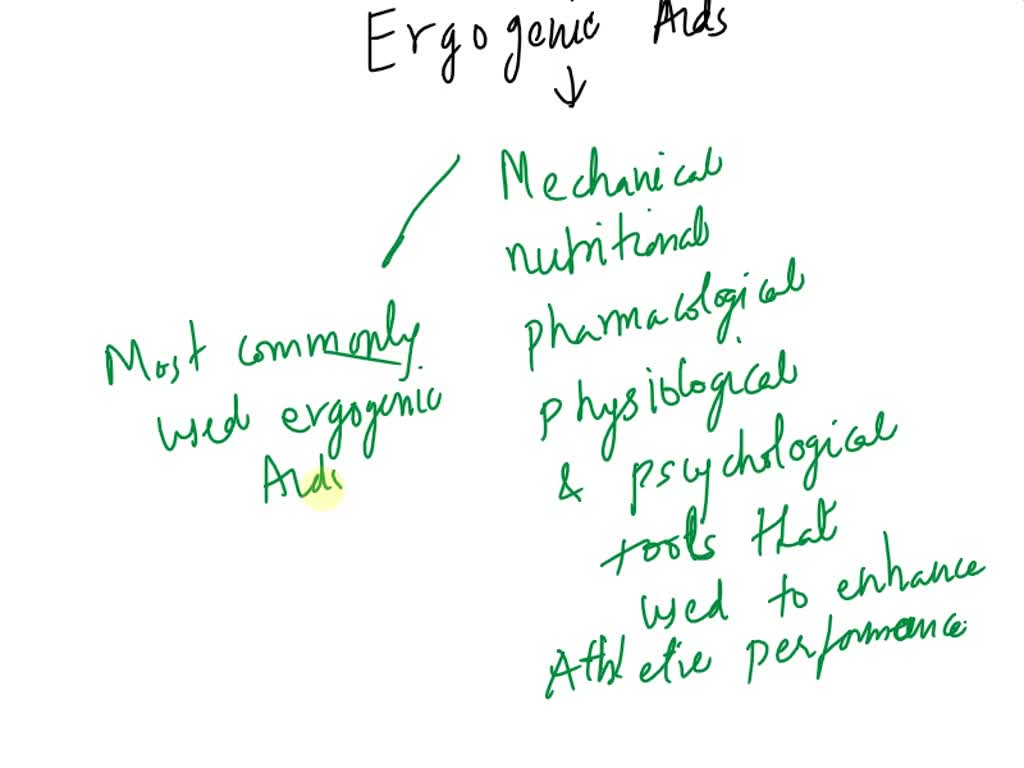 Ergogenic Aids
Mechanical
nutritional
pharmacological
physiological
& psychological
tools that
used to enhance
Athletic performance
Most commonly
used ergogenic
Aids